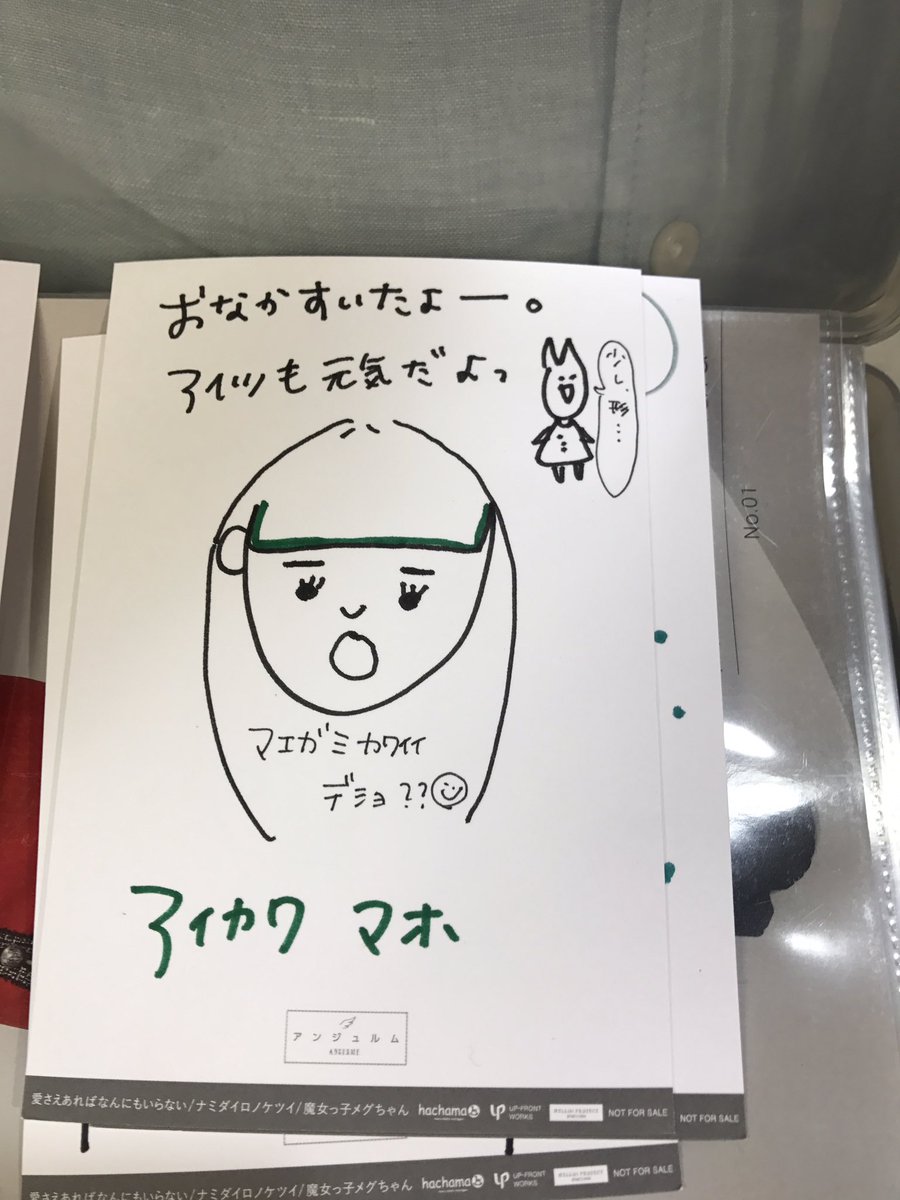 おなかすいたよー。
アイツも元気だよっ
少し、
形…
マエガミカワイイ
デショ??
アイカワ マホ
アンジュルム
ANGERME
愛さえあればなんにもいらない/ナミダイロノケツイ/魔女っ子メグちゃん hachama UP-FRONT WORKS HELLO! PROJECT NOT FOR SALE
NOT FOR SALE
愛さえあればなんにもいらない/ナミダイロノケツイ/魔女っ子メグちゃん hachama UP-FRONT WORKS HELLO! PROJECT NOT FOR SALE
No.01